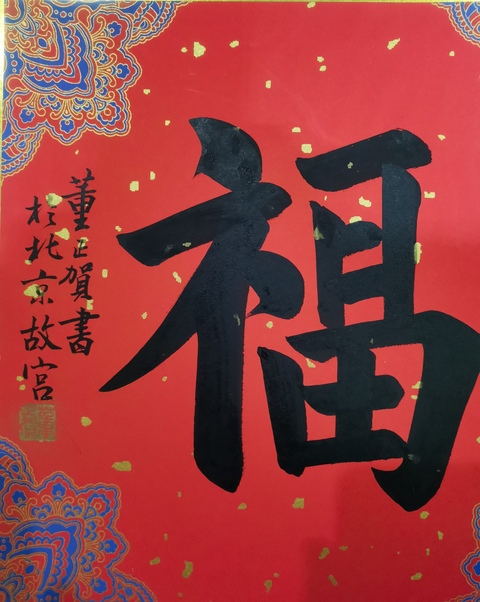 福
董正賀書
於北京故宮